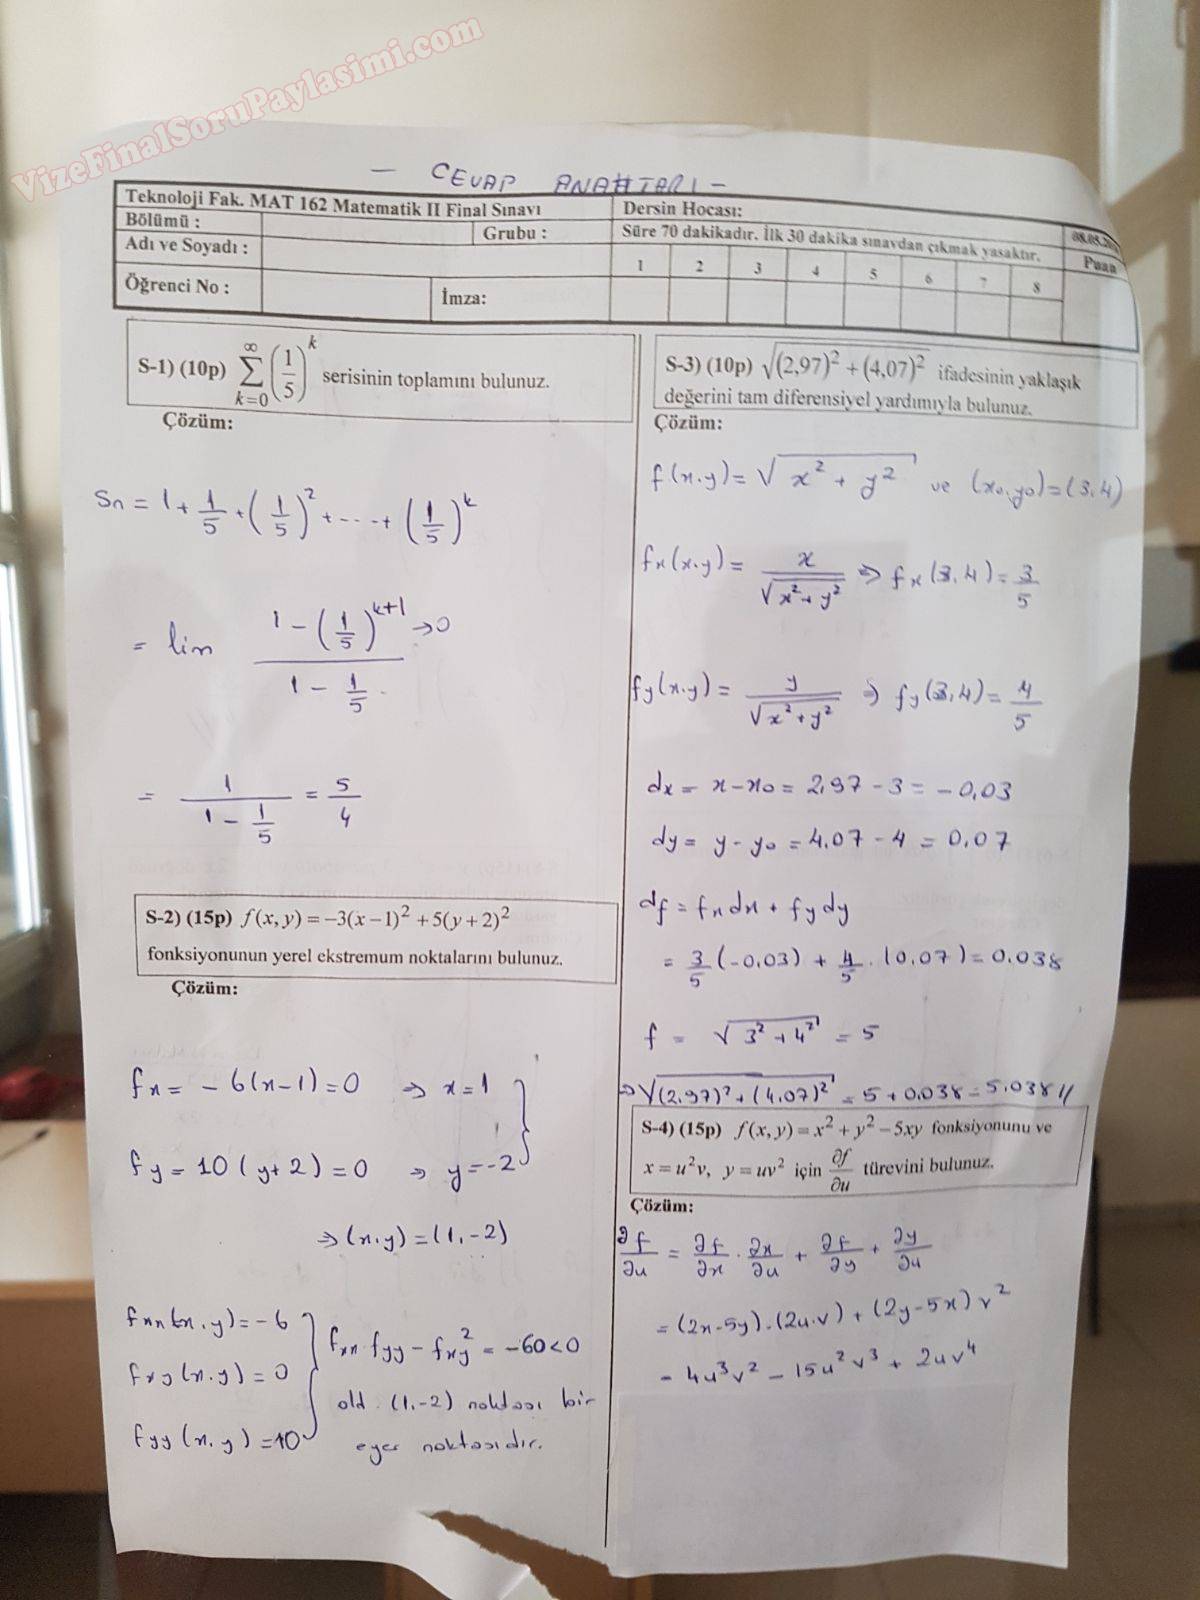 VizeFinalSoruPaylasimi.com
- CEVAP ANAHTARI -
Teknoloji Fak. MAT 162 Matematik II Final Sınavı
Dersin Hocası:
Bölümü :
Grubu :
Süre 70 dakikadır. İlk 30 dakika sınavdan çıkmak yasaktır.
Adı ve Soyadı :
1 2 3 4 5 6 7 8
Puan
Öğrenci No :
İmza:
S-1) (10p) ∑_{k=0}^{∞} (1/5)^k serisinin toplamını bulunuz.
Çözüm:
Sn = 1 + 1/5 + (1/5)^2 + ... + (1/5)^k
= lim (1 - (1/5)^{k+1} → 0) / (1 - 1/5)
= 1 / (1 - 1/5) = 5/4
S-2) (15p) f(x,y) = -3(x-1)² + 5(y+2)²
fonksiyonunun yerel ekstremum noktalarını bulunuz.
Çözüm:
fx = -6(x-1) = 0 ⇒ x = 1
fy = 10(y+2) = 0 ⇒ y = -2
⇒ (x,y) = (1,-2)
fxx(x,y) = -6
fxy(x,y) = 0
fyy(x,y) = 10
fxx·fyy - fxy² = -60 < 0
old. (1,-2) noktası bir
eyer noktasıdır.
S-3) (10p) √((2,97)² + (4,07)²) ifadesinin yaklaşık
değerini tam diferensiyel yardımıyla bulunuz.
Çözüm:
f(x,y) = √(x² + y²) ve (x₀,y₀) = (3,4)
fx(x,y) = x/√(x²+y²) ⇒ fx(3,4) = 3/5
fy(x,y) = y/√(x²+y²) ⇒ fy(3,4) = 4/5
dx = x-x₀ = 2,97 - 3 = -0,03
dy = y-y₀ = 4,07 - 4 = 0,07
df = fx dx + fy dy
= 3/5 (-0,03) + 4/5 · (0,07) = 0,038
f = √(3²+4²) = 5
⇒ √((2,97)² + (4,07)²) = 5 + 0,038 = 5,038 //
S-4) (15p) f(x,y) = x² + y² - 5xy fonksiyonunu ve
x = u²v, y = uv² için ∂f/∂u türevini bulunuz.
Çözüm:
∂f/∂u = ∂f/∂x · ∂x/∂u + ∂f/∂y + ∂y/∂u
= (2x-5y)·(2u·v) + (2y-5x) v²
= 4u³v² - 15u²v³ + 2uv⁴